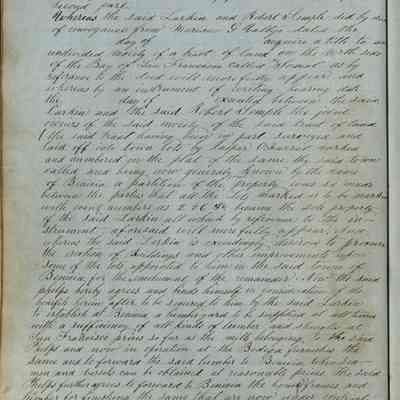 second part.
Whereas the said Larkin and Robert Semple did by deed
of conveyance from Mariano G Vallejo dated the
day of acquire a title to an
undivided moiety of a tract of land on the North side
of the Bay of San Francisco called as by
reference to the deed will more fully appear and
whereas by an instrument of writing bearing date
the day of executed between the said
Larkin and the said Robert Semple the joint
owners of the said moiety of the said tract of land
(the said tract having been in part surveyed and
laid off into town lots by Jasper O'Farrell marked
and numbered in the plat of the same the said town
called and being now generally known by the name
of Benicia a partition of the property was so made
between the parties that all the lots marked as to be marked
with even numbers as 2 4 6 8 & became the sole property
of the said Larkin all which by reference to the in-
strument aforesaid will more fully appear. And
whereas the said Larkin is exceedingly desirous to procure
the erection of Buildings and other improvements upon
some of the lots appointed to him in the said town of
Benicia for the enchancement of the remainder. Now the said
Phelps hereby agrees and binds himself in consideration of the
benefits herein after to be secured to him by the said Larkin
to establish at Benicia a lumber yard to be supplied at all times
with a sufficiency of all kinds of lumber and shingles at
San Francisco prices so far as the mills belonging to the said
Phelps and now in operation at the Bodega furnishes the
same and to forward the said lumber to Benicia whenever
men and vessels can be obtained at reasonable prices the said
Phelps further agrees to forward to Benicia the house frames and
lumber for finishing the same that are now under contract